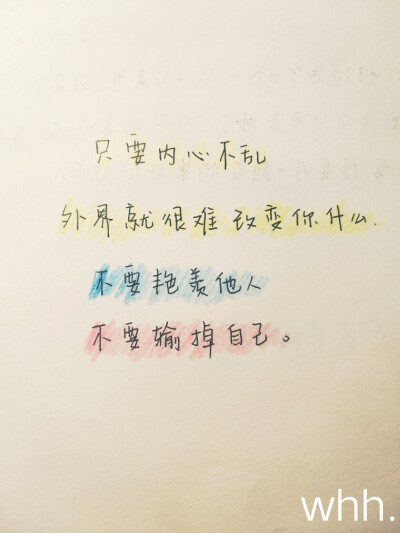 只要内心不乱
外界就很难改变你什么.
不要艳羡他人
不要输掉自己。
whh.